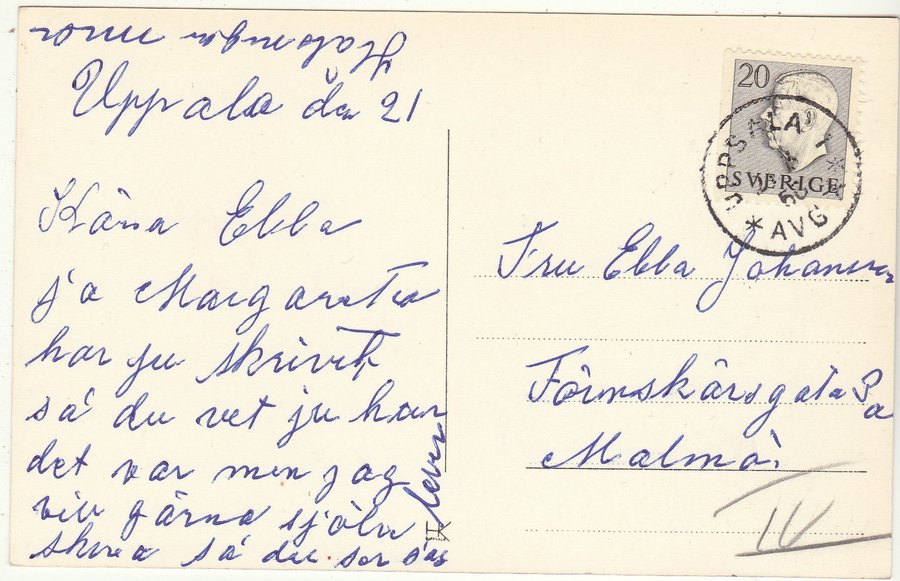 Uppsala den 21
Kära Ebba
ja Margareta
har ju skrivit
så du vet ju hur
det var men jag
vill gärna själv
skriva så du ser jag
lever
Hälsningar mor
20
SVERIGE
UPPSALA 1
AVG
Fru Ebba Johansson
Malmö
IV